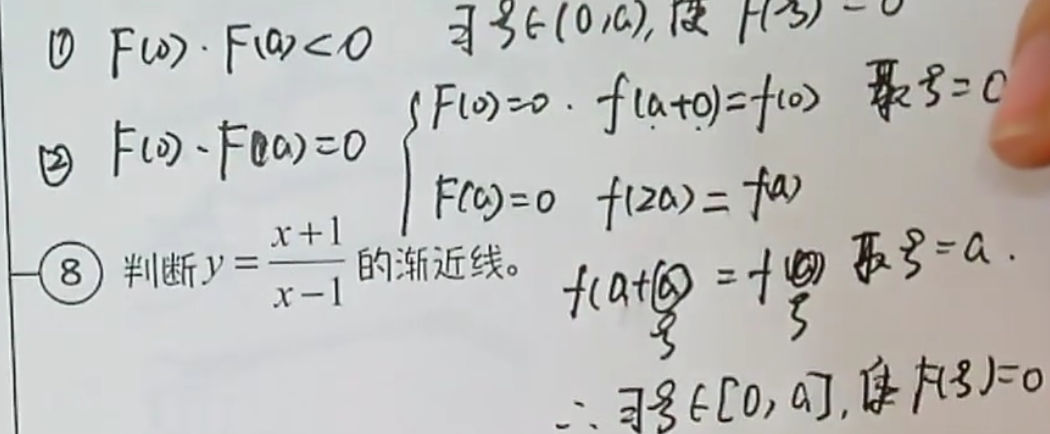 ① F(0)·F(a)<0 ∃ξ∈(0,a), 使 F(ξ)=0
② F(0)·F(a)=0 { F(0)=0 . f(a+0)=f(0) 取ξ=0
F(a)=0 f(2a)=f(a)
⑧ 判断 y=\frac{x+1}{x-1} 的渐近线。
f(a+a)=f(a) 取ξ=a.
ξ ξ
∴∃ξ∈[0,a], 使F(ξ)=0